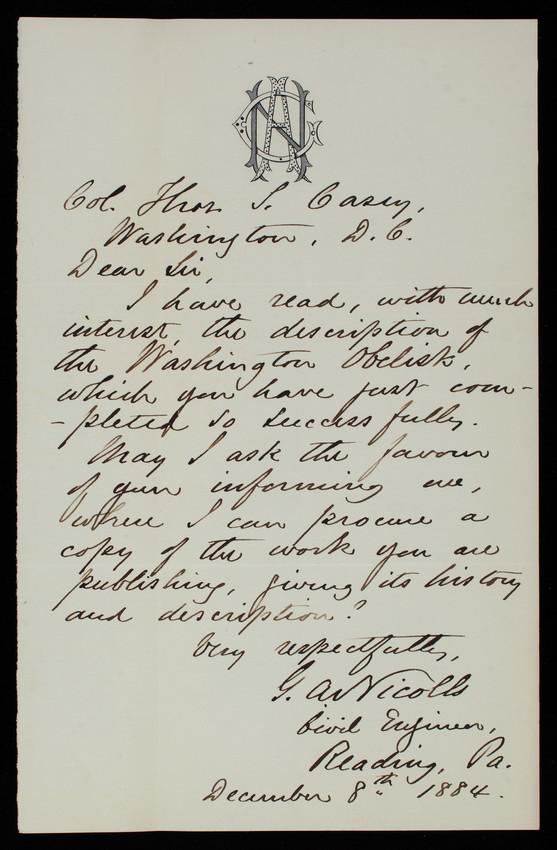 Col. Thos. L. Casey,
Washington, D. C.
Dear Sir,
I have read, with much
interest, the description of
the Washington Obelisk,
which you have just com-
-pleted so successfully.
May I ask the favour
of your informing me,
where I can procure a
copy of the work you are
publishing, giving its history
and description?
Very respectfully,
G. A. Nicolls
Civil Engineer,
Reading, Pa.
December 8th 1884.